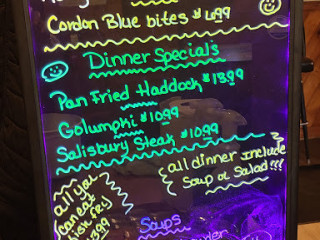 Cordon Blue bites $4.99
Dinner Specials
Pan Fried Haddock $18.99
Golumpki $10.99
Salisbury Steak $10.99
all dinner Include
Soup or Salad!!!
all you
can eat
fish fry
13.99
Soups